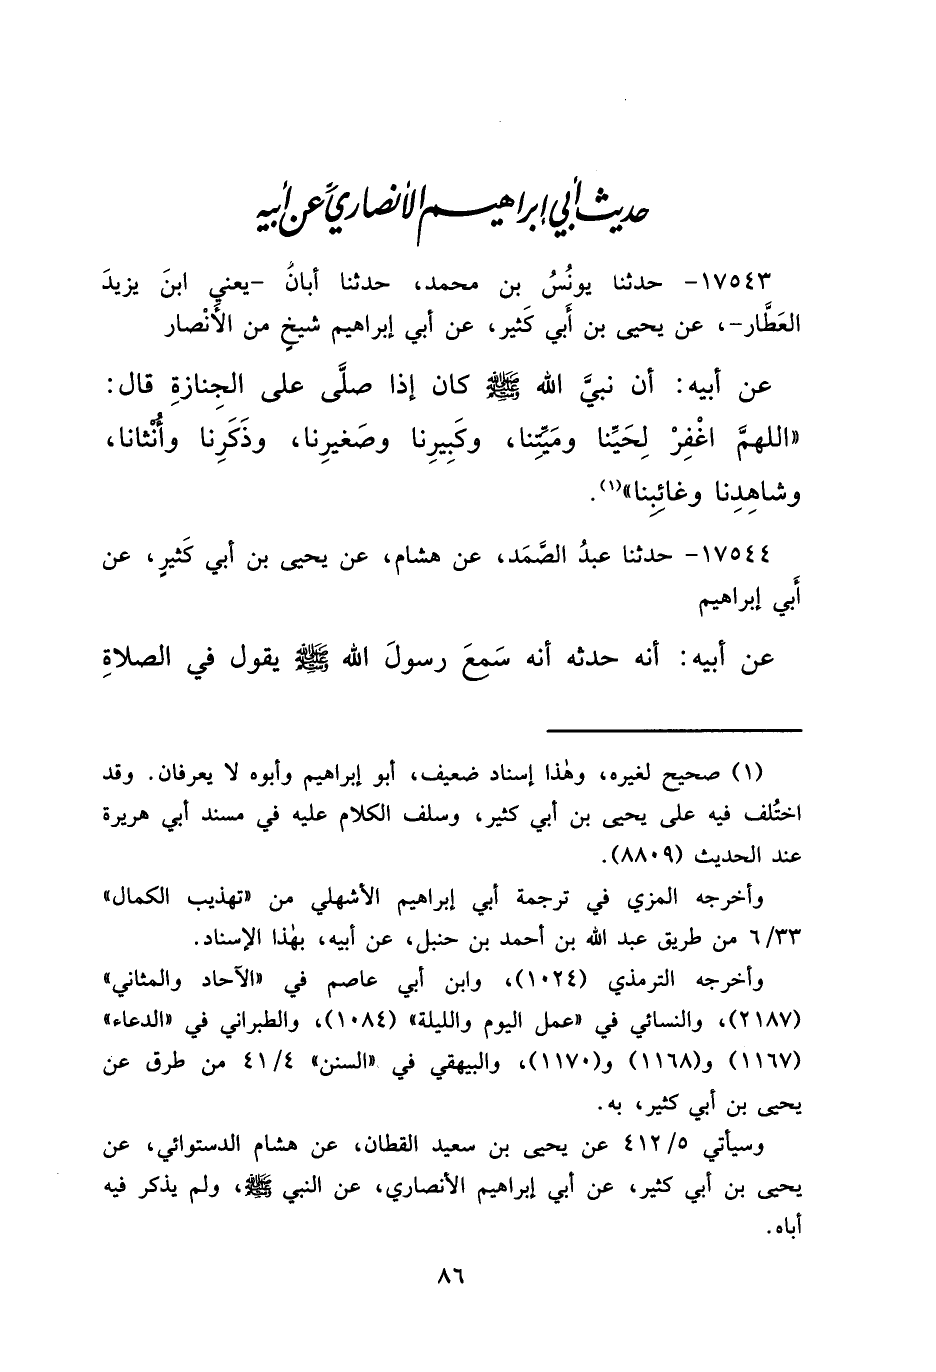 حديث أبي إبراهيم الأنصاري عن أبيه
١٧٥٤٣- حدثنا يونُسُ بن محمد، حدثنا أبانُ -يعني ابنَ يزيدَ
العَطَّار-، عن يحيى بن أَبي كَثير، عن أبي إبراهيم شيخٍ من الأَنْصار
عن أبيه: أن نبيَّ الله ﷺ كان إذا صلَّى على الجِنازةِ قال:
«اللهمَّ اغْفِرْ لِحَيِّنا ومَيِّتِنا، وكَبِيرِنا وصَغيرِنا، وذَكَرِنا وأُنْثانا،
وشاهِدِنا وغائِبِنا»(١).
١٧٥٤٤- حدثنا عبدُ الصَّمَد، عن هشام، عن يحيى بن أبي كَثيرٍ، عن
أَبي إبراهيم
عن أبيه: أنه حدثه أنه سَمِعَ رسولَ الله ﷺ يقول في الصلاةِ
(١) صحيح لغيره، وهٰذا إسناد ضعيف، أبو إبراهيم وأبوه لا يعرفان. وقد
اختُلف فيه على يحيى بن أبي كثير، وسلف الكلام عليه في مسند أبي هريرة
عند الحديث (٨٨٠٩).
وأخرجه المزي في ترجمة أبي إبراهيم الأشهلي من «تهذيب الكمال»
٦/٣٣ من طريق عبد الله بن أحمد بن حنبل، عن أبيه، بهٰذا الإسناد.
وأخرجه الترمذي (١٠٢٤)، وابن أبي عاصم في «الآحاد والمثاني»
(٢١٨٧)، والنسائي في «عمل اليوم والليلة» (١٠٨٤)، والطبراني في «الدعاء»
(١١٦٧) و(١١٦٨) و(١١٧٠)، والبيهقي في «السنن» ٤١/٤ من طرق عن
يحيى بن أبي كثير، به.
وسيأتي ٤١٢/٥ عن يحيى بن سعيد القطان، عن هشام الدستوائي، عن
يحيى بن أبي كثير، عن أبي إبراهيم الأنصاري، عن النبي ﷺ، ولم يذكر فيه
أباه.
٨٦